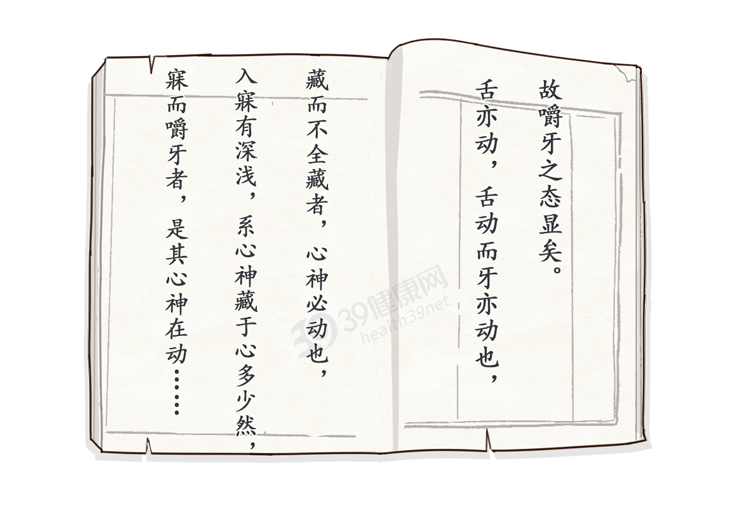 寐而嚼牙者，是其心神在动……
入寐有深浅，系心神藏于心多少然，
藏而不全藏者，心神必动也，
舌亦动，舌动而牙亦动也，
故嚼牙之态显矣。
39 39健康网
health39net